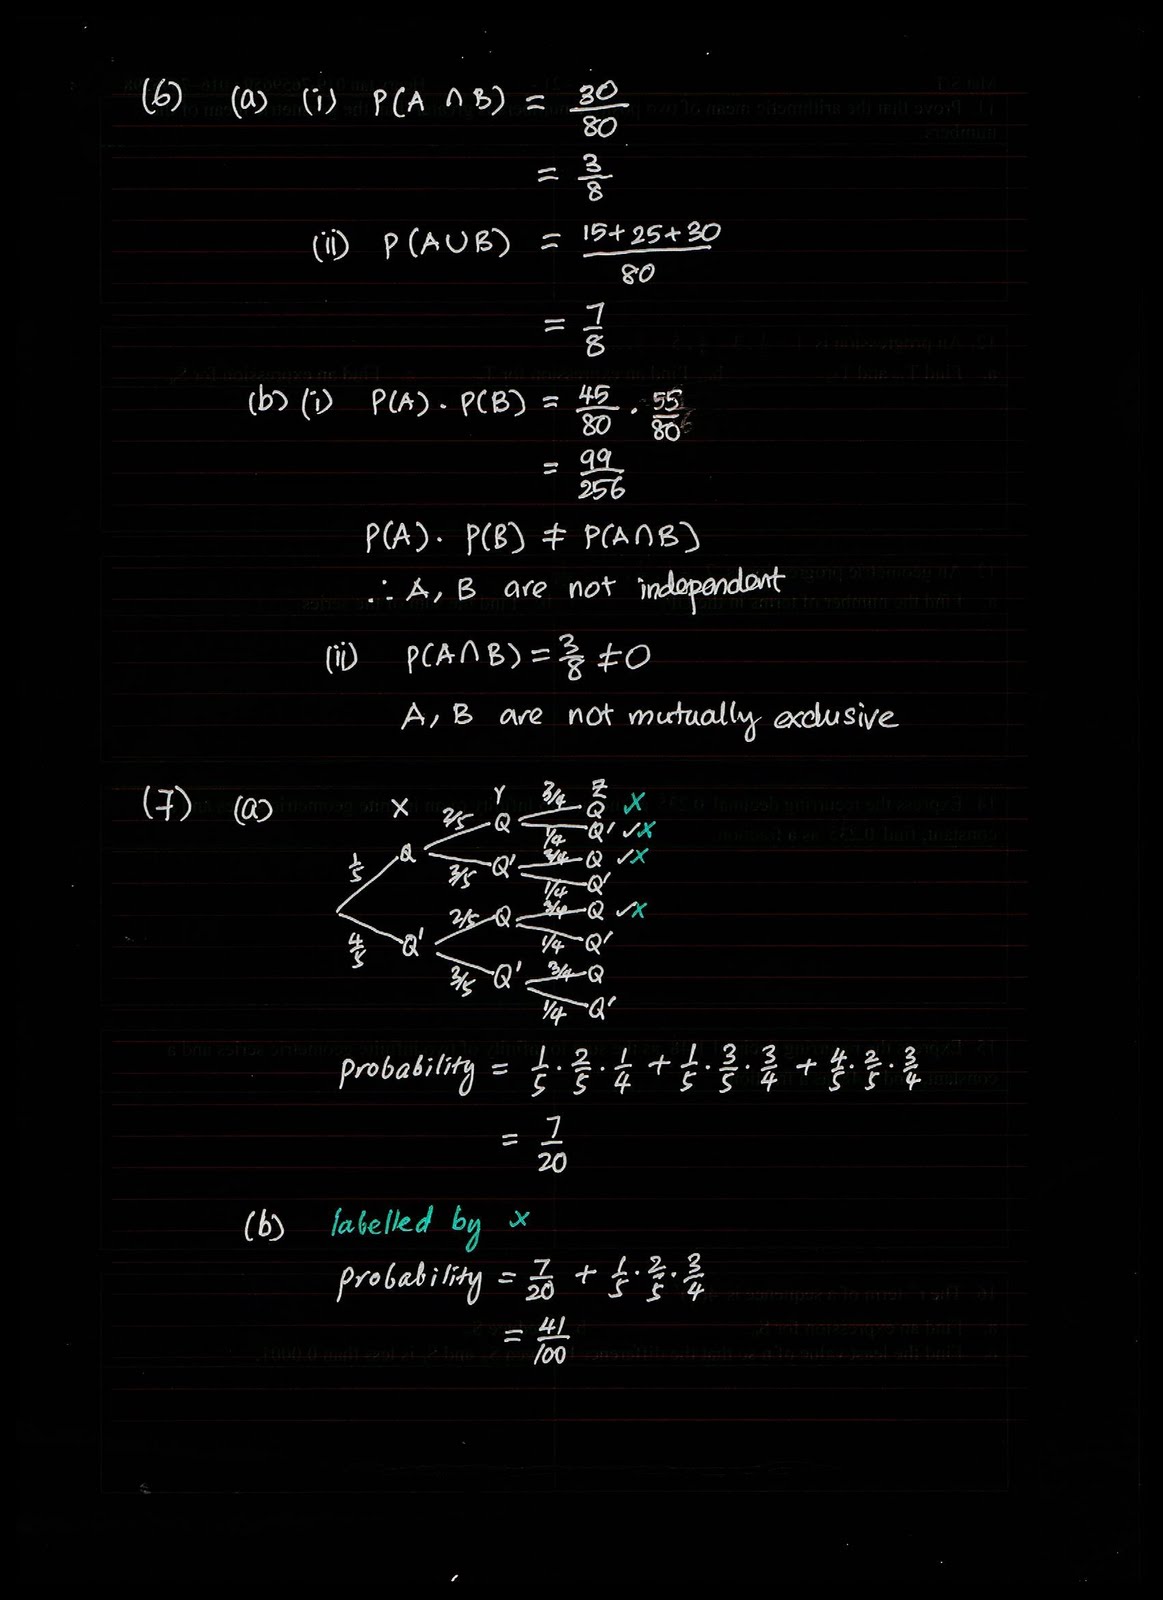 (6) (a) (i) P(A ∩ B) = 30/80
= 3/8
(ii) P(A∪B) = 15+25+30/80
= 7/8
(b) (i) P(A) . P(B) = 45/80 . 55/80
= 99/256
P(A) . P(B) ≠ P(A∩B)
∴ A, B are not independent
(ii) P(A∩B) = 3/8 ≠ 0
A, B are not mutually exclusive
(7) (a) X Y Z
1/5 Q 2/5 Q 3/4 Q x
1/4 Q' ✓x
3/5 Q' 3/4 Q ✓x
1/4 Q'
4/5 Q' 2/5 Q 3/4 Q ✓x
1/4 Q'
3/5 Q' 3/4 Q
1/4 Q'
probability = 1/5 . 2/5 . 1/4 + 1/5 . 3/5 . 3/4 + 4/5 . 2/5 . 3/4
= 7/20
(b) labelled by x
probability = 7/20 + 1/5 . 2/5 . 3/4
= 41/100